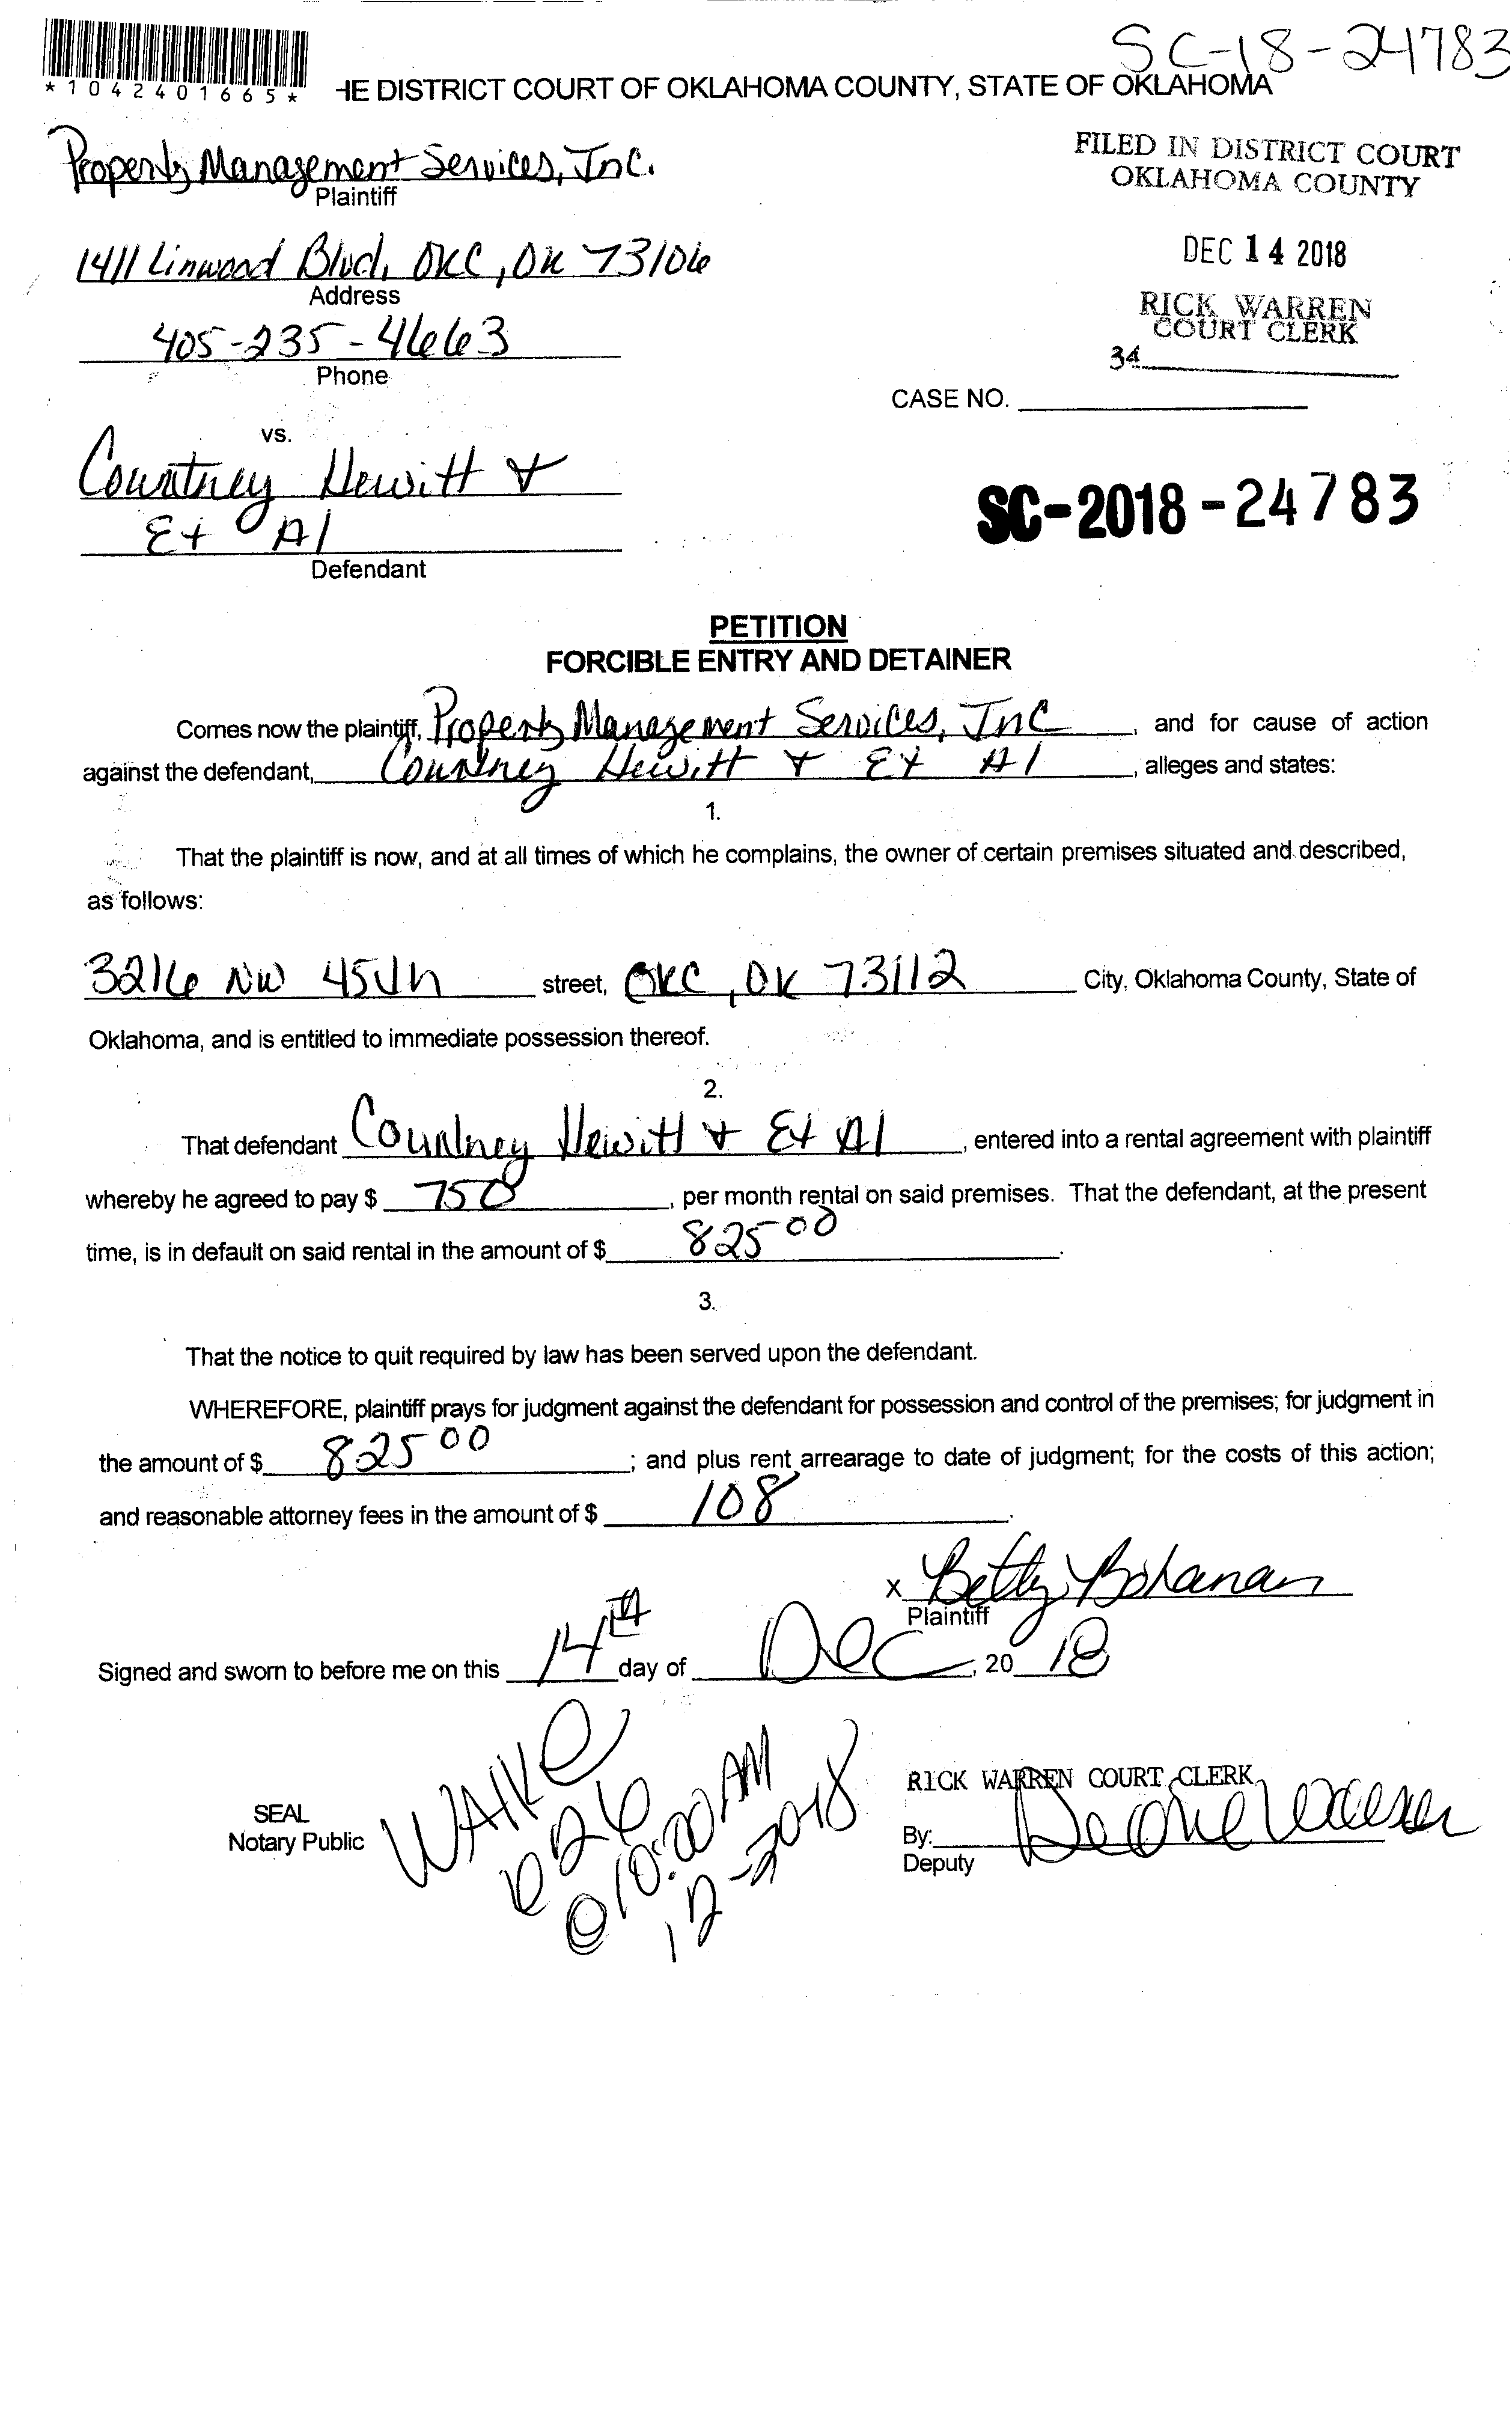 SC-18-24783
*1042401665*
HE DISTRICT COURT OF OKLAHOMA COUNTY, STATE OF OKLAHOMA
Property Management Services, Inc.
Plaintiff
FILED IN DISTRICT COURT
OKLAHOMA COUNTY
1411 Linwood Blvd, OKC, OK 73106
Address
DEC 14 2018
RICK WARREN
COURT CLERK
405-235-4663
Phone
34
CASE NO.
vs.
Courtney Hewitt &
Et Al
Defendant
SC-2018-24783
PETITION
FORCIBLE ENTRY AND DETAINER
Comes now the plaintiff, Property Management Services, Inc, and for cause of action
against the defendant, Courtney Hewitt & Et Al, alleges and states:
1.
That the plaintiff is now, and at all times of which he complains, the owner of certain premises situated and described,
as follows:
3216 NW 45th street, OKC, OK 73112 City, Oklahoma County, State of
Oklahoma, and is entitled to immediate possession thereof.
2.
That defendant Courtney Hewitt & Et Al, entered into a rental agreement with plaintiff
whereby he agreed to pay $ 750, per month rental on said premises. That the defendant, at the present
time, is in default on said rental in the amount of $ 825 00.
3.
That the notice to quit required by law has been served upon the defendant.
WHEREFORE, plaintiff prays for judgment against the defendant for possession and control of the premises; for judgment in
the amount of $ 825 00; and plus rent arrearage to date of judgment; for the costs of this action;
and reasonable attorney fees in the amount of $ 108.
x Betty Bohanan
Plaintiff
Signed and sworn to before me on this 14th day of Dec, 20 18
SEAL
Notary Public
WAIKE
@10:00AM
12-2018
RICK WARREN COURT CLERK
By:
Deputy